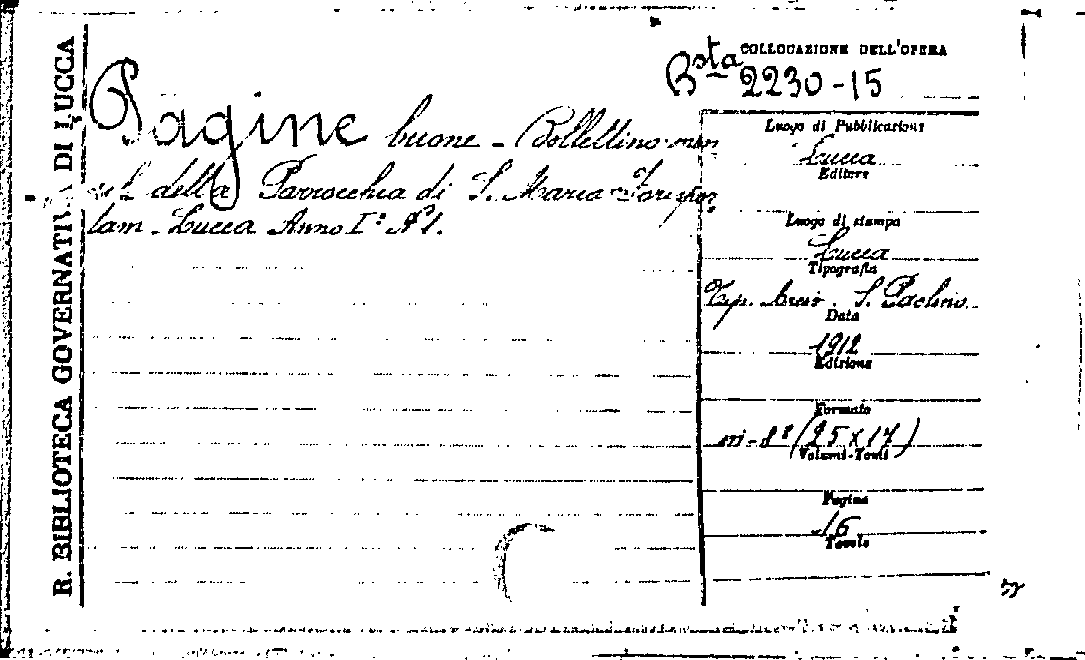 R. BIBLIOTECA GOVERNATIVA DI LUCCA
COLLOCAZIONE DELL'OPERA
Bsta 2230-15
Pagine buone - Bollettino men
della Parrocchia di S. Maria Forispor
tam - Lucca Anno I° N° 1.
Luogo di Pubblicazione
Lucca
Editore
Luogo di stampa
Lucca
Tipografia
Tip. S. Paolino
Data
1912
Edizione
Formato
in-8° (25 x 17)
Volumi-Tomi
Pagine
16
Tavole